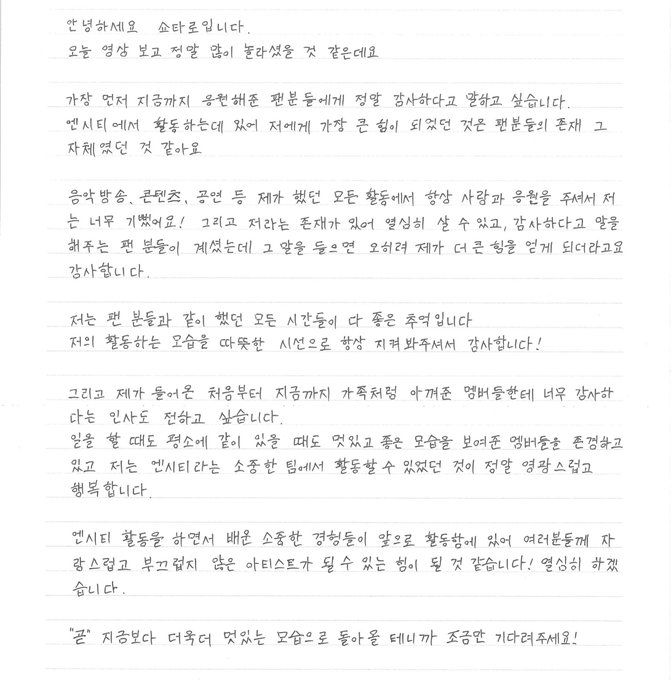 안녕하세요 쇼타로입니다.
오늘 영상 보고 정말 많이 놀라셨을 것 같은데요
가장 먼저 지금까지 응원해준 팬분들에게 정말 감사하다고 말하고 싶습니다.
엔시티에서 활동하는데 있어 저에게 가장 큰 힘이 되었던 것은 팬분들의 존재 그
자체였던 것 같아요
음악방송, 콘텐츠, 공연 등 제가 했던 모든 활동에서 항상 사람과 응원을 주셔서 저
는 너무 기뻤어요! 그리고 저라는 존재가 있어 열심히 살 수 있고, 감사하다고 말을
해주는 팬 분들이 계셨는데 그 말을 들으면 오히려 제가 더 큰 힘을 얻게 되더라고요
감사합니다.
저는 팬 분들과 같이 했던 모든 시간들이 다 좋은 추억입니다
저의 활동하는 모습을 따뜻한 시선으로 항상 지켜봐주셔서 감사합니다!
그리고 제가 들어온 처음부터 지금까지 가족처럼 아껴준 멤버들한테 너무 감사하
다는 인사도 전하고 싶습니다.
일을 할 때도 평소에 같이 있을 때도 멋있고 좋은 모습을 보여준 멤버들을 존경하고
있고 저는 엔시티라는 소중한 팀에서 활동할 수 있었던 것이 정말 영광스럽고
행복합니다.
엔시티 활동을 하면서 배운 소중한 경험들이 앞으로 활동함에 있어 여러분들께 자
랑스럽고 부끄럽지 않은 아티스트가 될 수 있는 힘이 될 것 같습니다! 열심히 하겠
습니다.
"곧" 지금보다 더욱더 멋있는 모습으로 돌아올 테니까 조금만 기다려주세요!